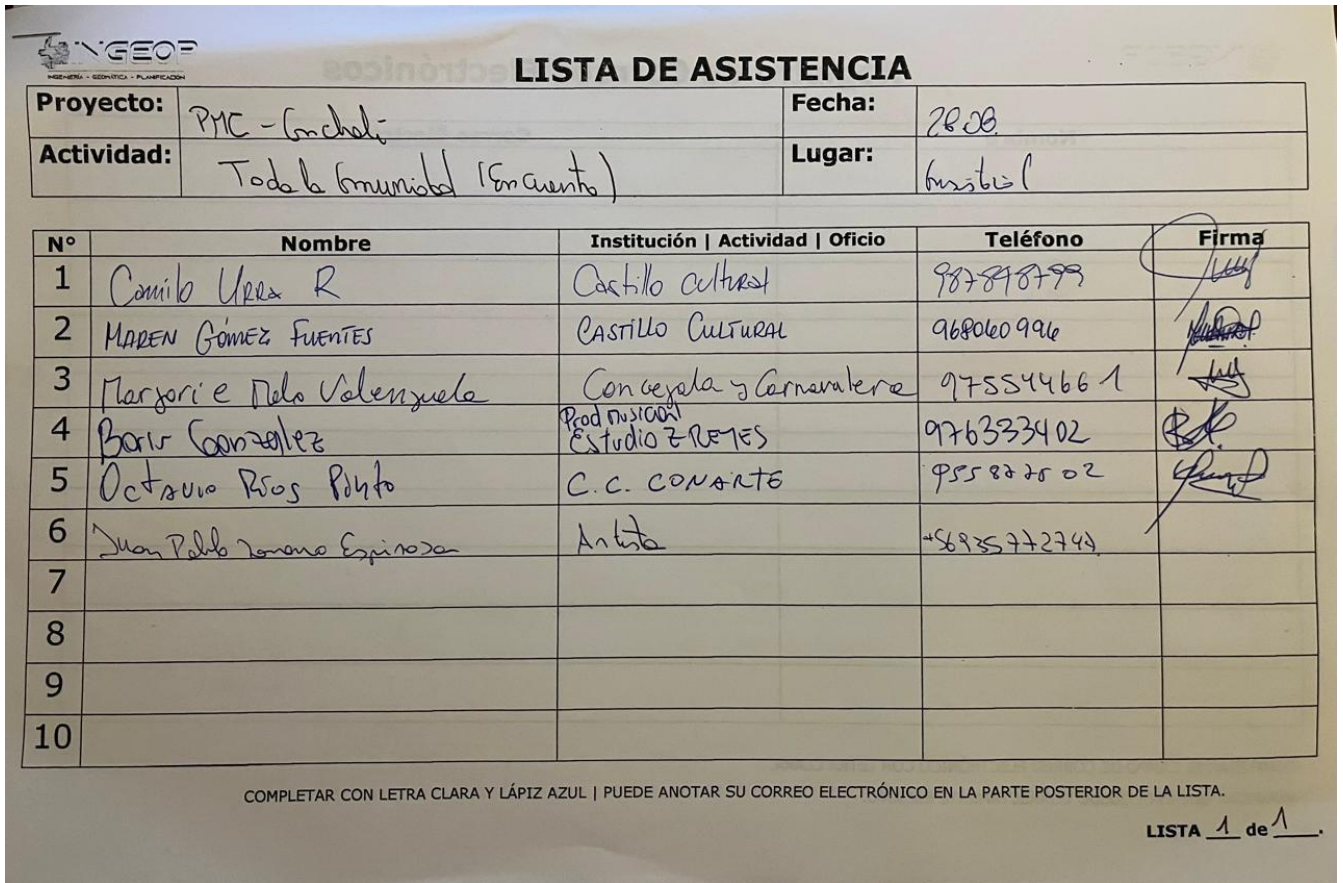 INGEOP
INGENIERÍA - GEOMÁTICA - PLANIFICACIÓN
LISTA DE ASISTENCIA
Proyecto: PMC - Conchalí Fecha: 28.08.
Actividad: Toda la Comunidad (Encuentro) Lugar:
N° Nombre Institución | Actividad | Oficio Teléfono Firma
1 Camilo Urra R Castillo Cultural 987898799
2 MAREN GÓMEZ FUENTES CASTILLO CULTURAL 968060996
3 Marjorie Melo Valenzuela Concejala y Carnavalera 975544661
4 Boris Gonzalez Prod musical
Estudio Z REYES 976333402
5 Octavio Ríos Pinto C.C. CONARTE
6 Juan Pablo Espinoza Artista
7
8
9
10
COMPLETAR CON LETRA CLARA Y LÁPIZ AZUL | PUEDE ANOTAR SU CORREO ELECTRÓNICO EN LA PARTE POSTERIOR DE LA LISTA.
LISTA 1 de 1.